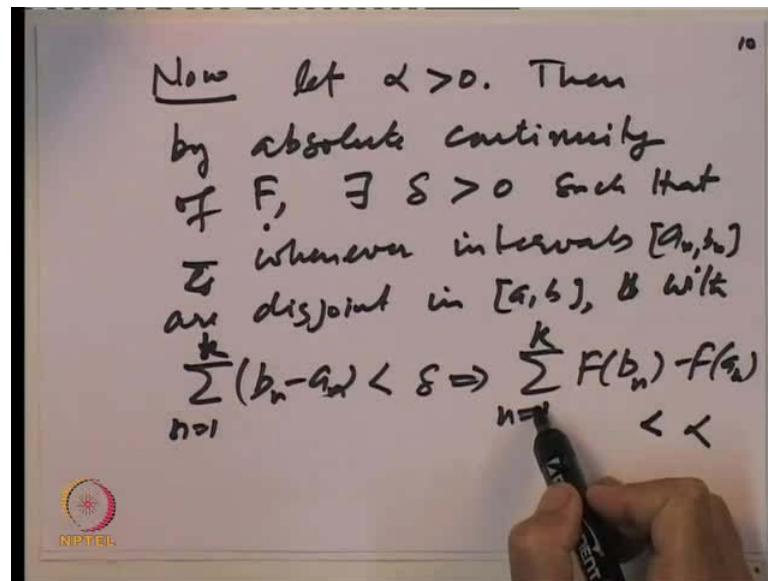 10
Now let α > 0. Then
by absolute continuity
of F, ∃ δ > 0 such that
whenever intervals [a_n, b_n]
are disjoint in [a, b], with
\sum_{n=1}^{k} (b_n - a_n) < δ ⇒ \sum_{n=1}^{k} F(b_n) - F(a_n)
< α
NPTEL